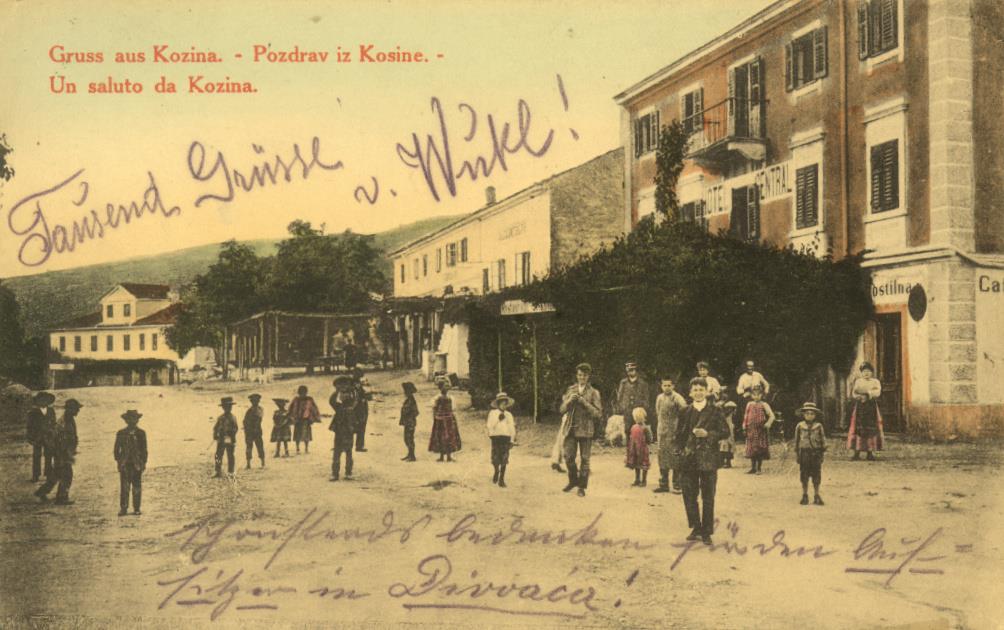 Gruss aus Kozina. - Pozdrav iz Kosine. -
Un saluto da Kozina.
Tausend Grüsse
v. Wukl!
HOTEL CENTRAL
ostilna
Ca
bedanken für den Auf=
sitzer in Divvača!